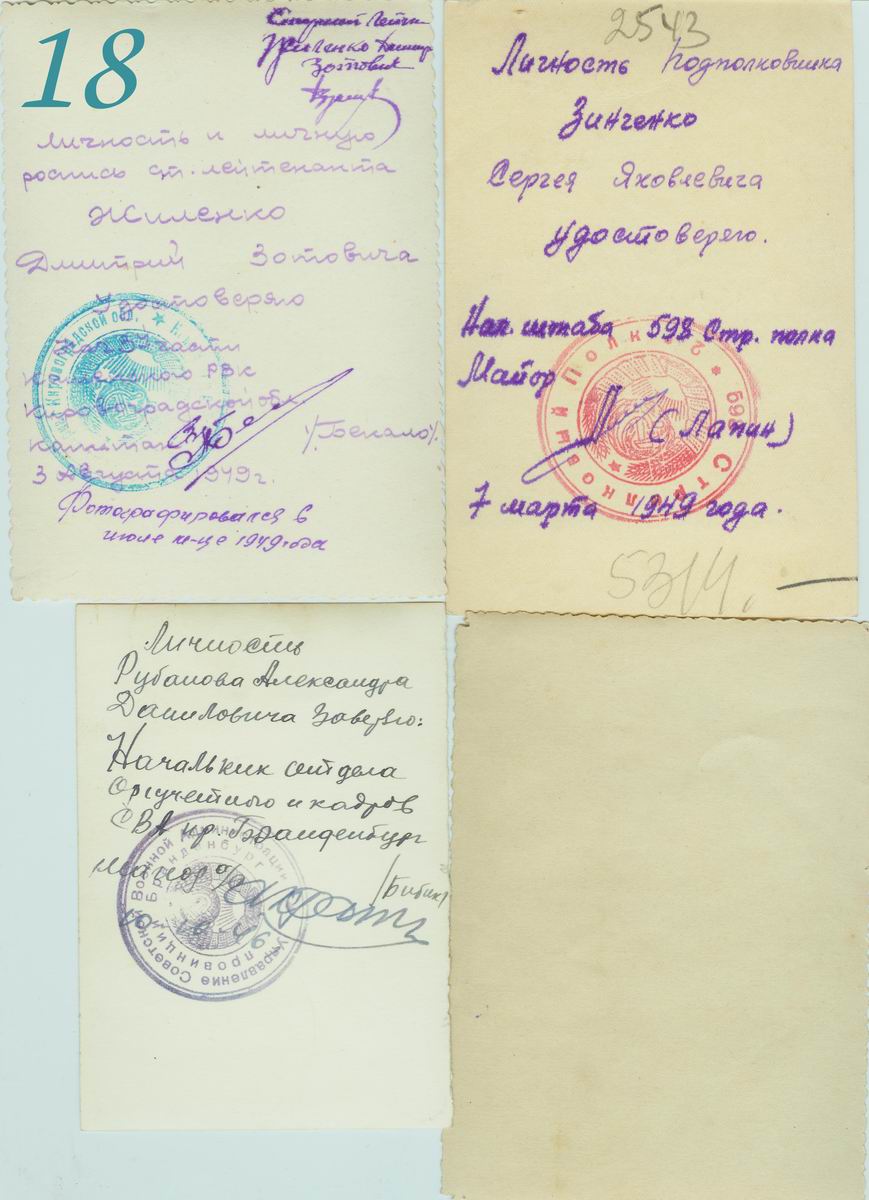 18
Старший Лейт
Жиленко Дмитр
Зотович
Личность и личную
роспись ст. лейтенанта
Жиленко
Дмитрий Зотовича
Удостоверяю
части
РВК
Кировоградской обл.
Капитан /Бекало/
3 Августа 1949 г.
Фотографировался в
июле м-це 1949 года
КИРОВОГРАДСКОЙ ОБЛ.
2543
Личность Подполковника
Зинченко
Сергея Яковлевича
удостоверяю.
Нач. штаба 598 Стр. полка
Майор
(С Лапин)
7 марта 1949 года.
598 Стрелковый Полк
53/4.
Личность
Рубанова Александра
Даниловича Заверяю:
Начальник отдела
Оргучетного и кадров
СВА пр. Бранденбург
Майор а/с
/Бибик/
10 46
Управление Советской Военной Администрации
провинции Бранденбург